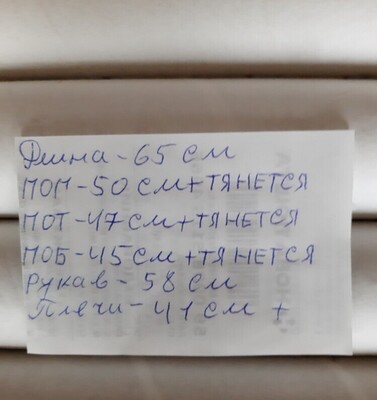 Длина - 65 см
ПОГ - 50 см + ТЯНЕТСЯ
ПОТ - 47 см + ТЯНЕТСЯ
ПОБ - 45 см + ТЯНЕТСЯ
Рукав - 58 см
Плечи - 41 см +